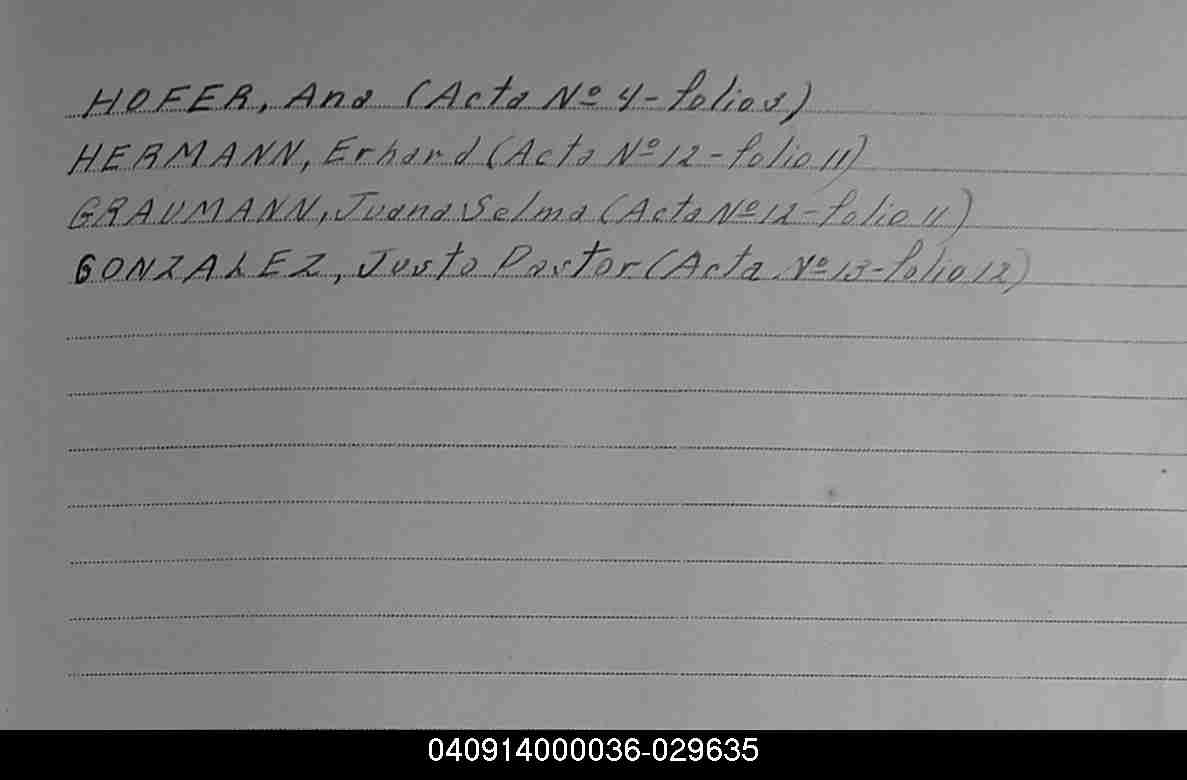 HOFER, Ana (Acta Nº 4-folio 3)
HERMANN, Erhard (Acta Nº 12-folio 11)
GRAUMANN, Juana Selma (Acta Nº 12-folio 11)
GONZALEZ, Justo Pastor (Acta Nº 13-folio 12)
040914000036-029635